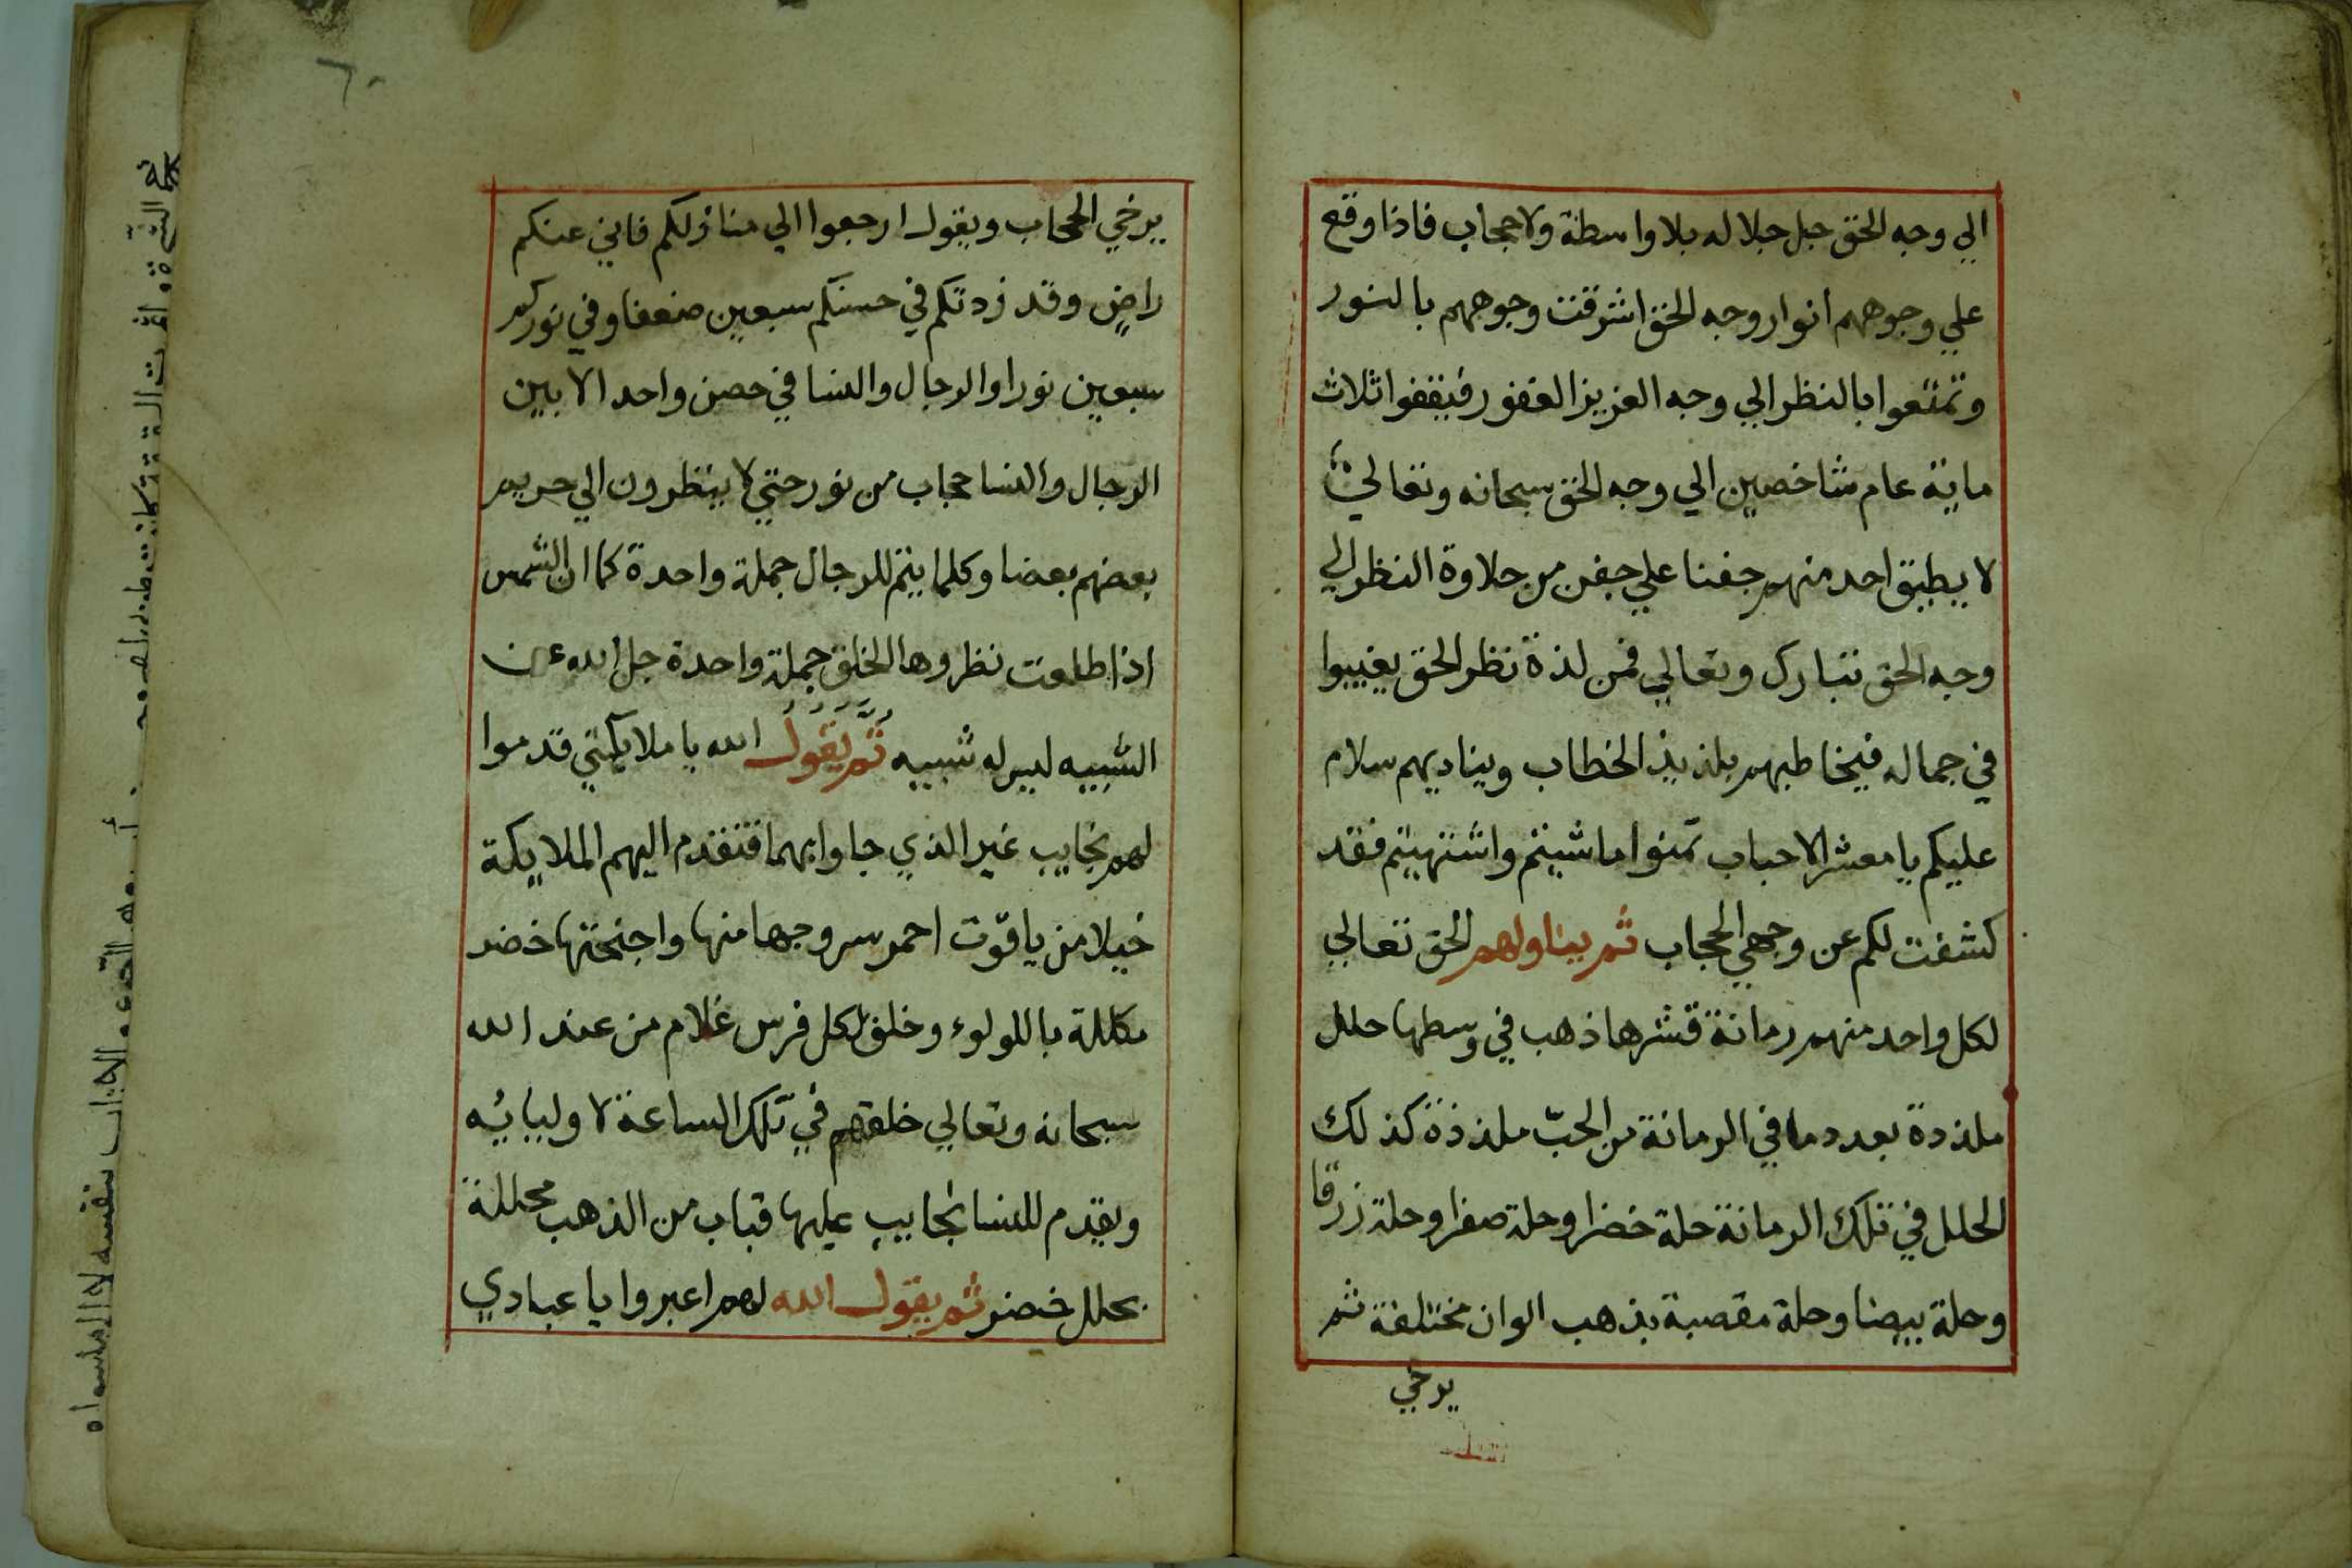 الي وجه الحق جل جلاله بلا واسطة ولا حجاب فاذا وقع
علي وجوههم انوار وجه الحق اشرقت وجوههم بالنور
وتمتعوا بالنظر الي وجه العزيز الغفور فيقفوا ثلاث
ماية عام شاخصين الي وجه الحق سبحانه وتعالي
لا يطبق احد منهم جفنا علي جفن من حلاوة النظر الي
وجه الحق تبارك وتعالي فمن لذة نظر الحق يغيبوا
في جماله فيخاطبهم بلذيذ الخطاب ويناديهم سلام
عليكم يا معشر الاحباب تمنوا ما شيتم واشتهيتم فقد
كشفت لكم عن وجهي الحجاب ثم يناولهم الحق تعالي
لكل واحد منهم رمانة قشرها ذهب في وسطها حلل
ملذدة بعدد ما في الرمانة من الحبّ ملذذة كذلك
الحلل في تلك الرمانة حلة خضرا وحلة صفرا وحلة زرقا
وحلة بيضا وحلة مقصبة بذهب الوان مختلفة ثم
يرخي
٦٠
يرخي الحجاب ويقول ارجعوا الي منازلكم فاني عنكم
راضٍ وقد زدتكم في حسنكم سبعين ضعفا وفي نوركم
سبعين نورا والرجال والنسا في حصن واحد الا بين
الرجال والنسا حجاب من نور حتي لا ينظرون الي حريم
بعضهم بعضا وكلما يتم للرجال جملة واحدة كما ان الشمس
اذا طلعت نظروها الخلق جملة واحدة جل الله عن
الشبيه ليس له شبيه ثُمَّ يَقُولُ الله يا ملايكتي قدموا
لهم نجايب غير الذي جاوا بهما فتقدم اليهم الملايكة
خيلا من ياقوت احمر سروجها منها واجنحتها خضر
مكللة باللولوء وخلق لكل فرس غلام من عند الله
سبحانه وتعالي خلقهم في تلك الساعة لاوليايه
ويقدم للنسا نجايب عليها قباب من الذهب مجللة
بحلل خضر ثم يقول الله لهم اعبروا يا عبادي